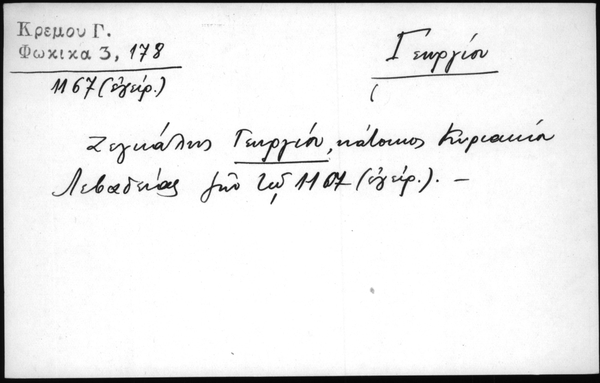 Κρεμου Γ.
Φωκικα 3, 178
1167 (ἐγείρ.)
Γεωργίου
Ζεγκάλης Γεωργίου, κάτοικος Κυριακίου
Λεβαδείας 1167 (ἐγείρ.). —